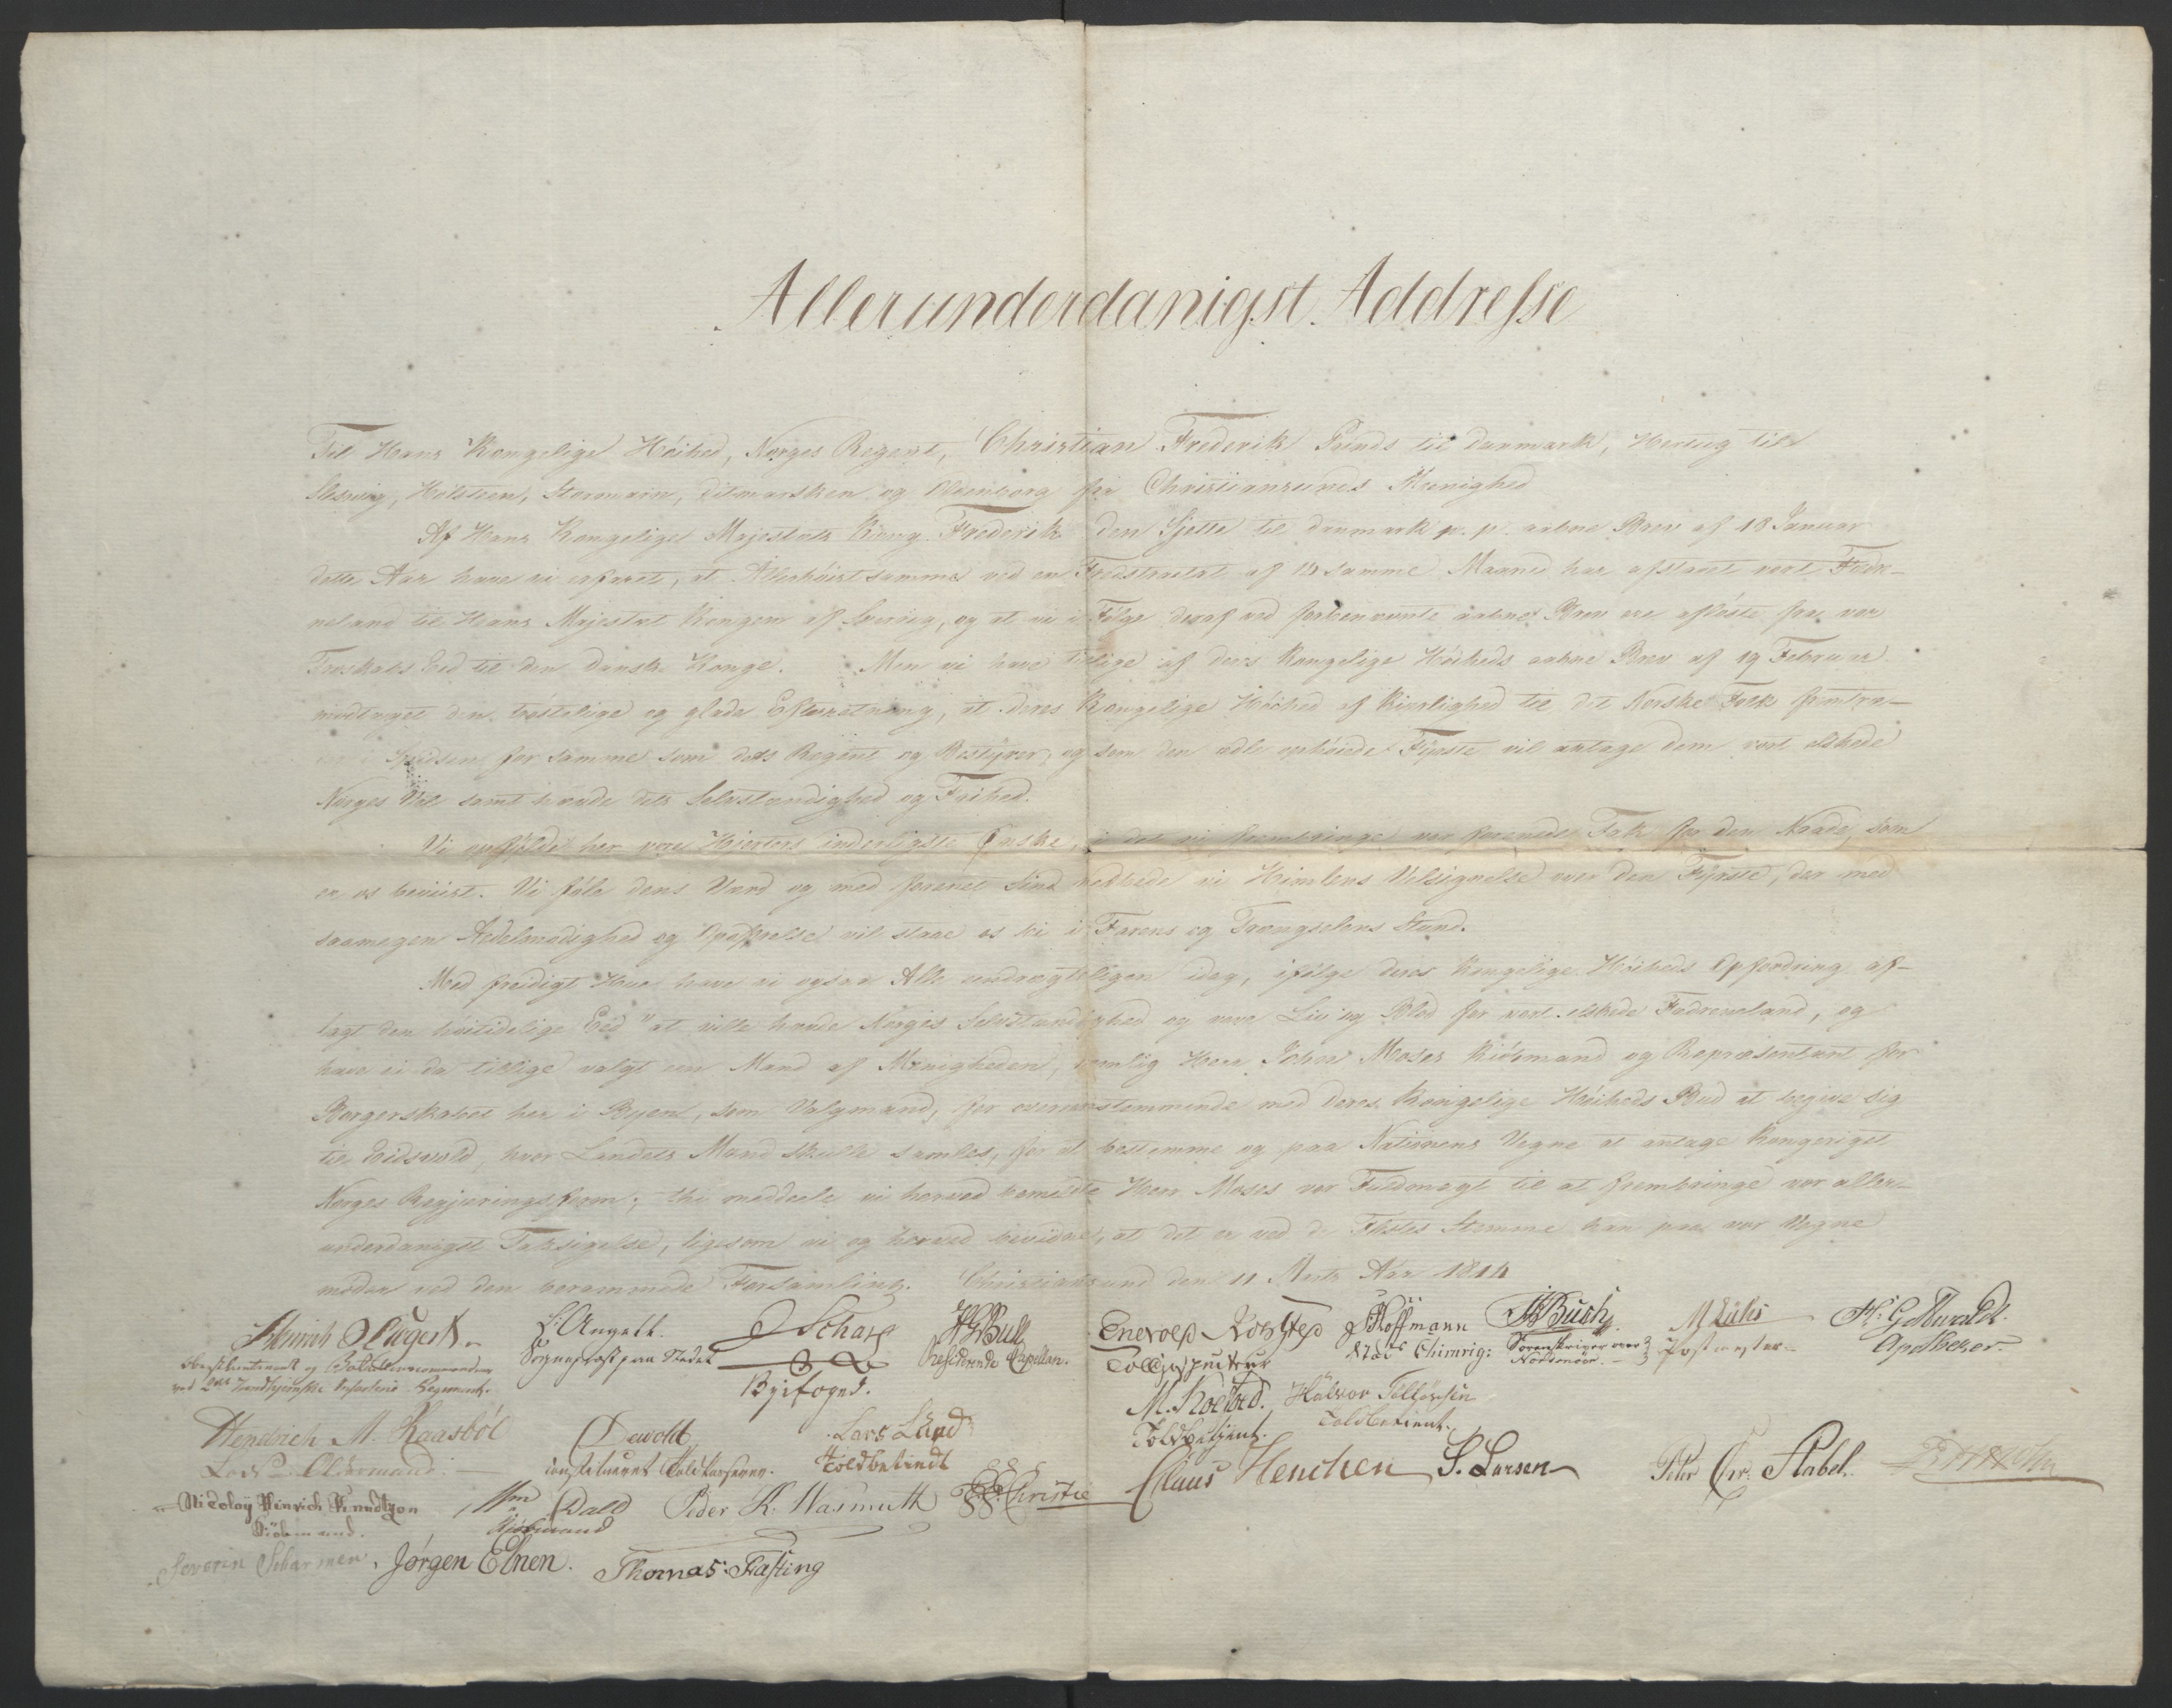 Allerunderdanigst Addresse
Til Hans Kongelige Höihed, Norges Regent, Christian Frederik Prinds til Danmark, Hertug til
Slesvig, Holsteen, Stormarn, Ditmarsken og Oldenborg fra Christiansunds Menighed
Af Hans Kongelige Majestæts Kong Frederik den Sjette til Danmark p. p. aabne Brev af 18 Januar
dette Aar have vi erfaret, at Allerhöistsamme ved en Fredstractat af 14 samme Maaned har afstaaet vort Fædre-
neland til Hans Majestæt Kongen af Sverrig, og at vi i Fölge deraf ved forbenævnte aabne Brev ere aflöste fra vor
Troskabs Eed til den Danske Konge. Men vi have tillige af deres Kongelige Höiheds aabne Brev af 19 Februar
modtaget den tröstelige og glade Efterretning, at deres Kongelige Höihed af Kierlighed til det Norske Folk fremtræ-
Spidsen for samme som dets Regent og Bestyrer, og som den ædle ophöiede Fyrste vil antage dem vort elskede
Norges Vel samt hævde dets Selvstændighed og Frihed.
Vi opfylde her vore Hierters inderligste Önske, i det vi frembringe vor forenede Tak for den Naade, som
er os beviist. Vi föle dens Værd og med forenet Sind nedbede vi Himlens Velsignelse over den Fyrste, der med
saamegen Ædelmodighed og Opofrelse vil staae os bi i Farens og Trængselens Stund.
Med freidigt Hue have vi ogsaa Alle eendrægteligen idag, ifölge deres Kongelige Höiheds Opfordring af-
lagt den höitidelige Eed "at ville hævde Norges Selvstændighed og vove Liv og Blod for vort elskede Fædreneland, og
have vi da tillige valgt een Mand af Menigheden, nemlig Herr John Moses Kiöbmand og Repræsentant for
Borgerskabet her i Byen, som Valgmand, for overensstemmende med deres Kongelige Höiheds Bud at begive sig
til Eidsvold, hvor Landets Mænd skulle samles, for at bestemme og paa Nationens Vegne at antage Kongeriget
Norges Regjeringsform; thi meddeele vi herved bemeldte Herr Moses vor Fuldmagt til at frembringe vor aller-
underdanigst Taksigelse, ligesom vi og herved bevidne, at det er ved de Flestes Stemme han paa vor Vegne
möder ved den berammede Forsamling. Christiansund den 11 Marts Aar 1814
S. Angell. J Scharf Hoffmann Busch
Sognepræst paa Stædet Residerende Capellan. Chirurg: Sorenskriver over Postmester Apotheker
Nordmöer.
ved 2det Trondhjemske Infanterie Regiment.
Byefoged.
M. Halvor
Toldbetjent. Toldbetient.
Hendrich M. Kaasböl Lars Lund
Lods Oldermand. constitueret Toldkasserer. Toldbetiendt
Claus Henchen S. Larsen Peter Chr. Stabel
Nicolay Hinrich Knudtzon Wm Dall Peder K. Wasmuth Christie
Kiöbmand. Kjöbmand
Severin Jörgen Ebnen. Thomas Fasting